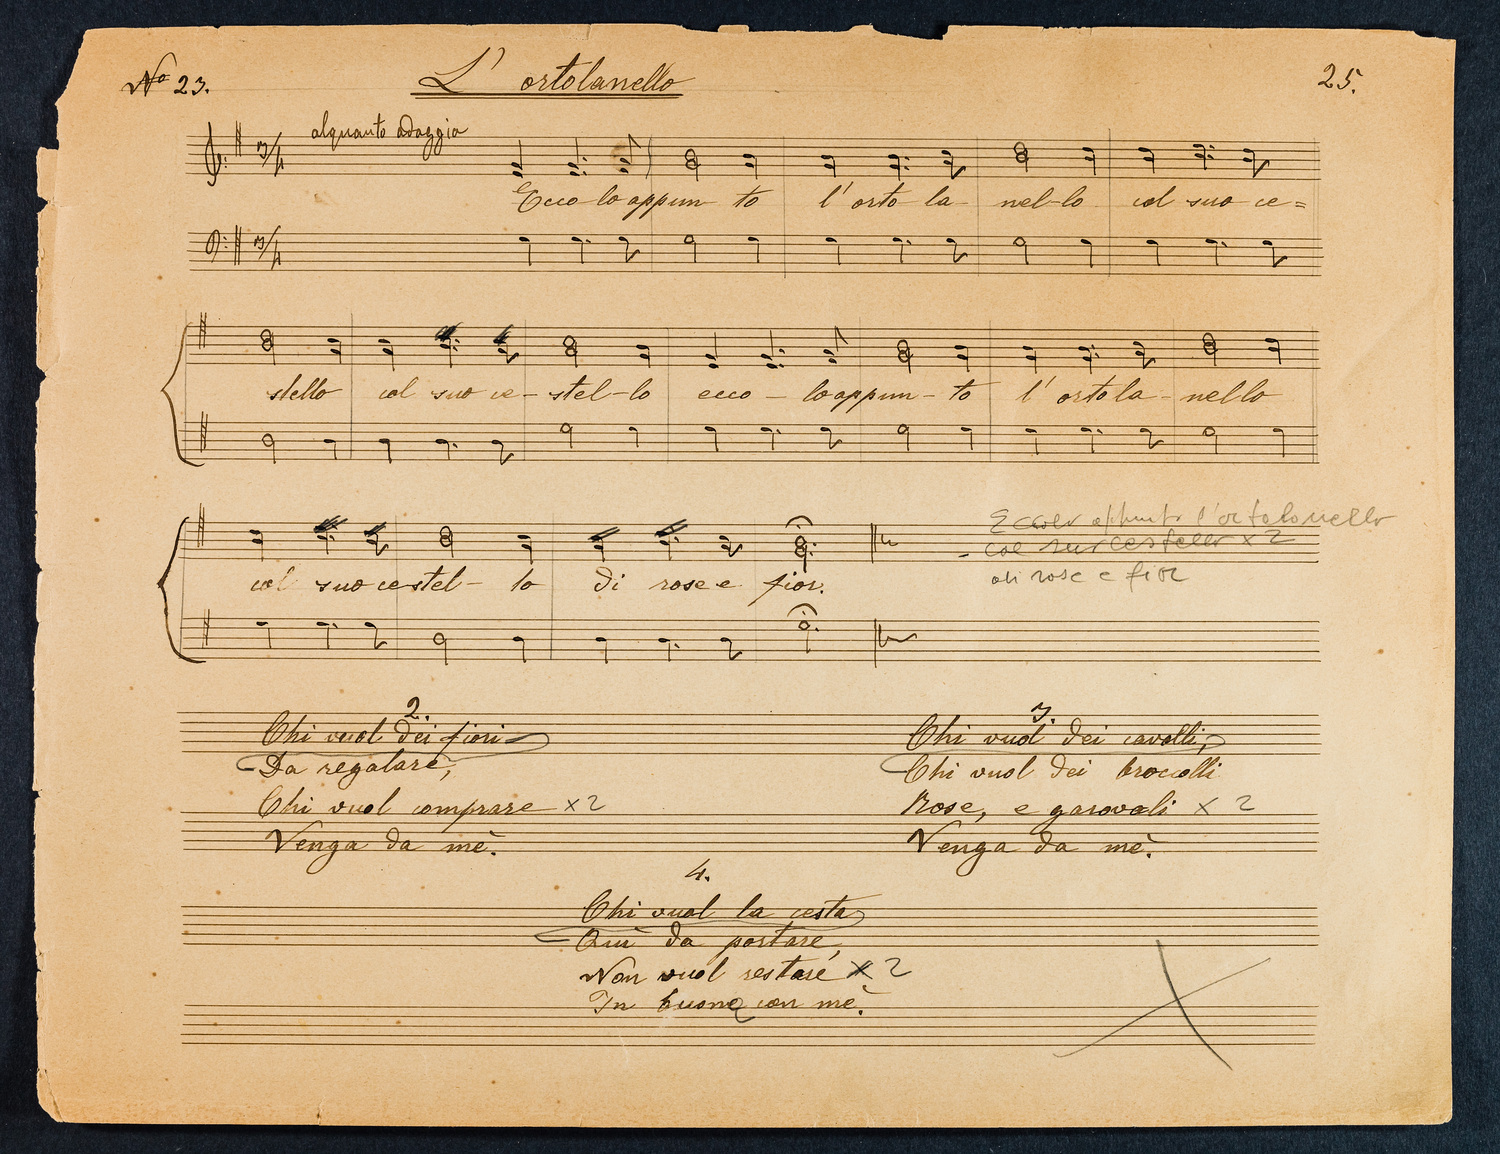 No 23.
L' ortolanello
25.
alquanto adaggio
3/4
Ecco lo appun- to l' orto la- nel-lo col suo ce=
3/4
stello col suo ce- stel-lo ecco - lo appun- to l' ortola- nello
col suo cestel- lo di rose e fior.
Eccolo appunto l'ortolanello
- col suo cestello x 2
di rose e fior
2.
Chi vuol dei fiori
Da regalare,
Chi vuol comprare x 2
Venga da mè.
3.
Chi vuol dei cavolli,
Chi vuol dei broccolli
Rose, e garovali x 2
Venga da mè.
4.
Chi vuol la cesta
Qui da portare,
Non vuol restare x 2
In buona con mè.